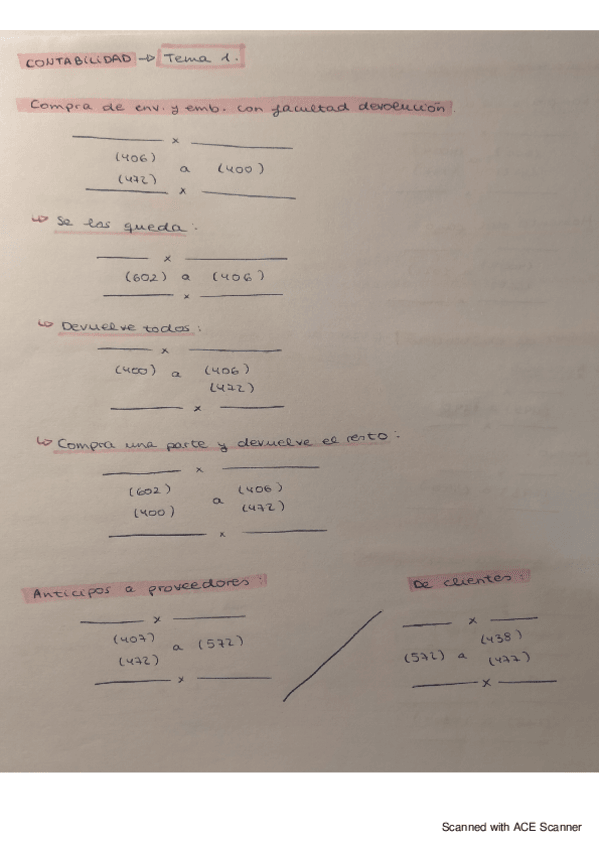 CONTABILIDAD → Tema 1.
Compra de env. y emb. con facultad devolución.
x
(406)
a (400)
(472)
x
↳ Se las queda:
x
(602) a (406)
x
↳ Devuelve todos:
x
(400) a (406)
(472)
x
↳ Compra una parte y devuelve el resto:
x
(602) a (406)
(400) (472)
x
Anticipos a proveedores:
x
(407) a (572)
(472)
x
De clientes:
x
(438)
(572) a (477)
x
Scanned with ACE Scanner